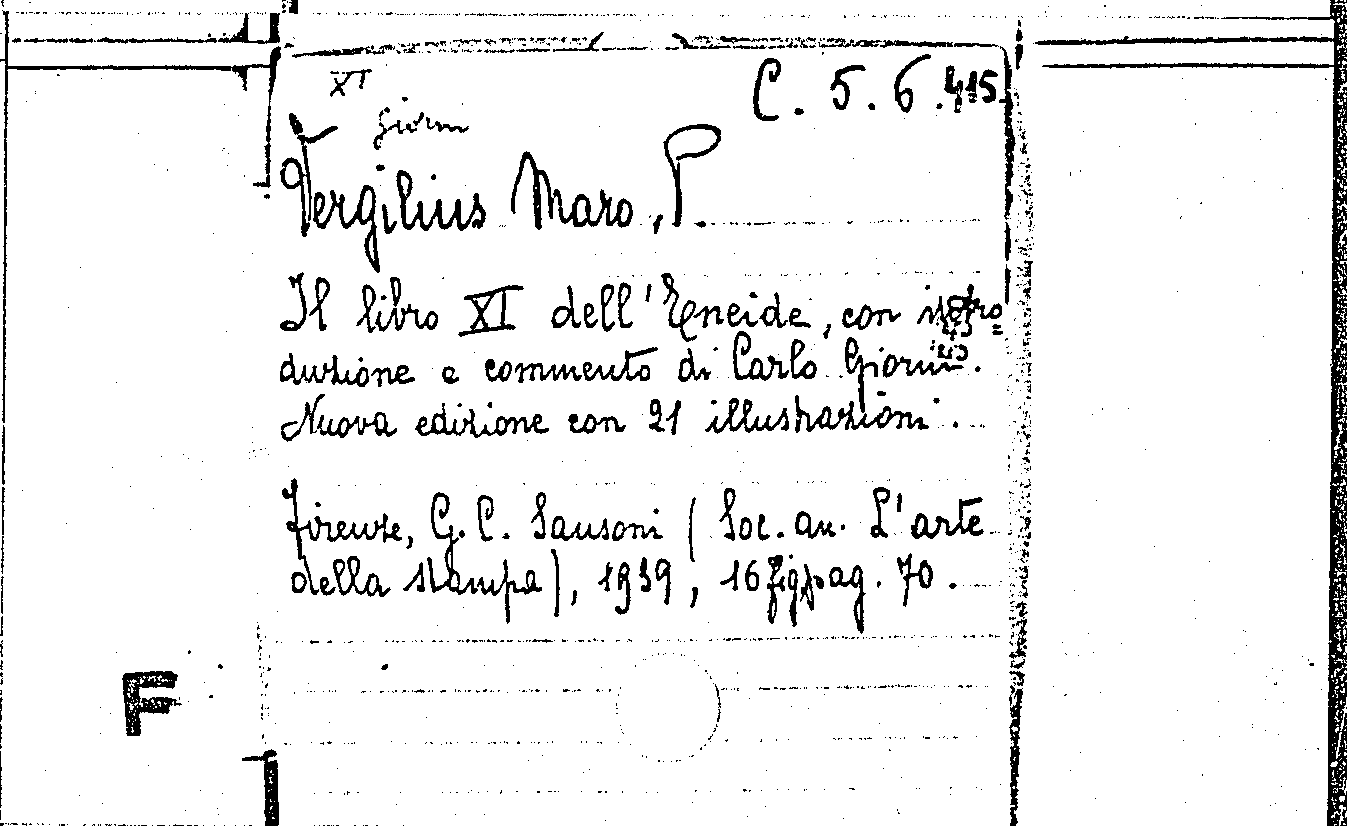 XI
C. 5. 6. 415
Giorni
Vergilius Maro, P.
Il libro XI dell'Eneide, con intro=
duzione e commento di Carlo Giorni.
Nuova edizione con 21 illustrazioni.
Firenze, G. C. Sansoni (Soc. an. L'arte
della stampa), 1939, 16° fig. pag. 70.
F